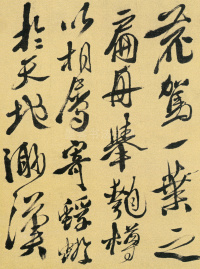 花駕一葉之
扁舟舉匏樽
以相屬寄蜉蝣
於天地渺滄